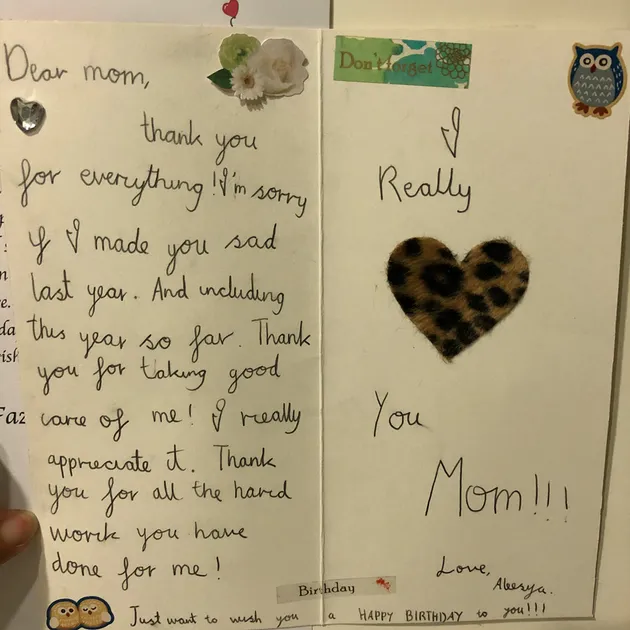 Dear mom,
thank you
for everything! I'm sorry
if I made you sad
last year. And including
this year so far. Thank
you for taking good
care of me! I really
appreciate it. Thank
you for all the hard
work you have
done for me!
Don't forget
I
Really
You
Mom!!!
Love,
Birthday
Just want to wish you a HAPPY BIRTHDAY to you!!!